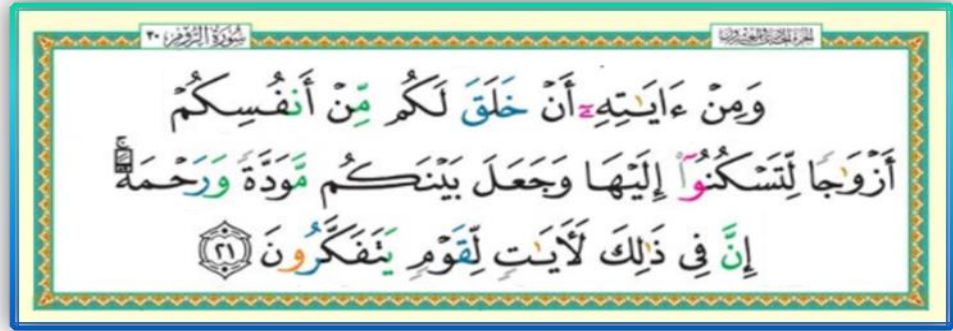 الجزء الحادي والعشرون
سُورَةُ الرُّومِ ٣٠
وَمِنْ ءَايَـٰتِهِۦٓ أَنْ خَلَقَ لَكُم مِّنْ أَنفُسِكُمْ
أَزْوَٰجًا لِّتَسْكُنُوٓا۟ إِلَيْهَا وَجَعَلَ بَيْنَكُم مَّوَدَّةً وَرَحْمَةً ۚ
إِنَّ فِى ذَٰلِكَ لَـَٔايَـٰتٍ لِّقَوْمٍ يَتَفَكَّرُونَ ٢١